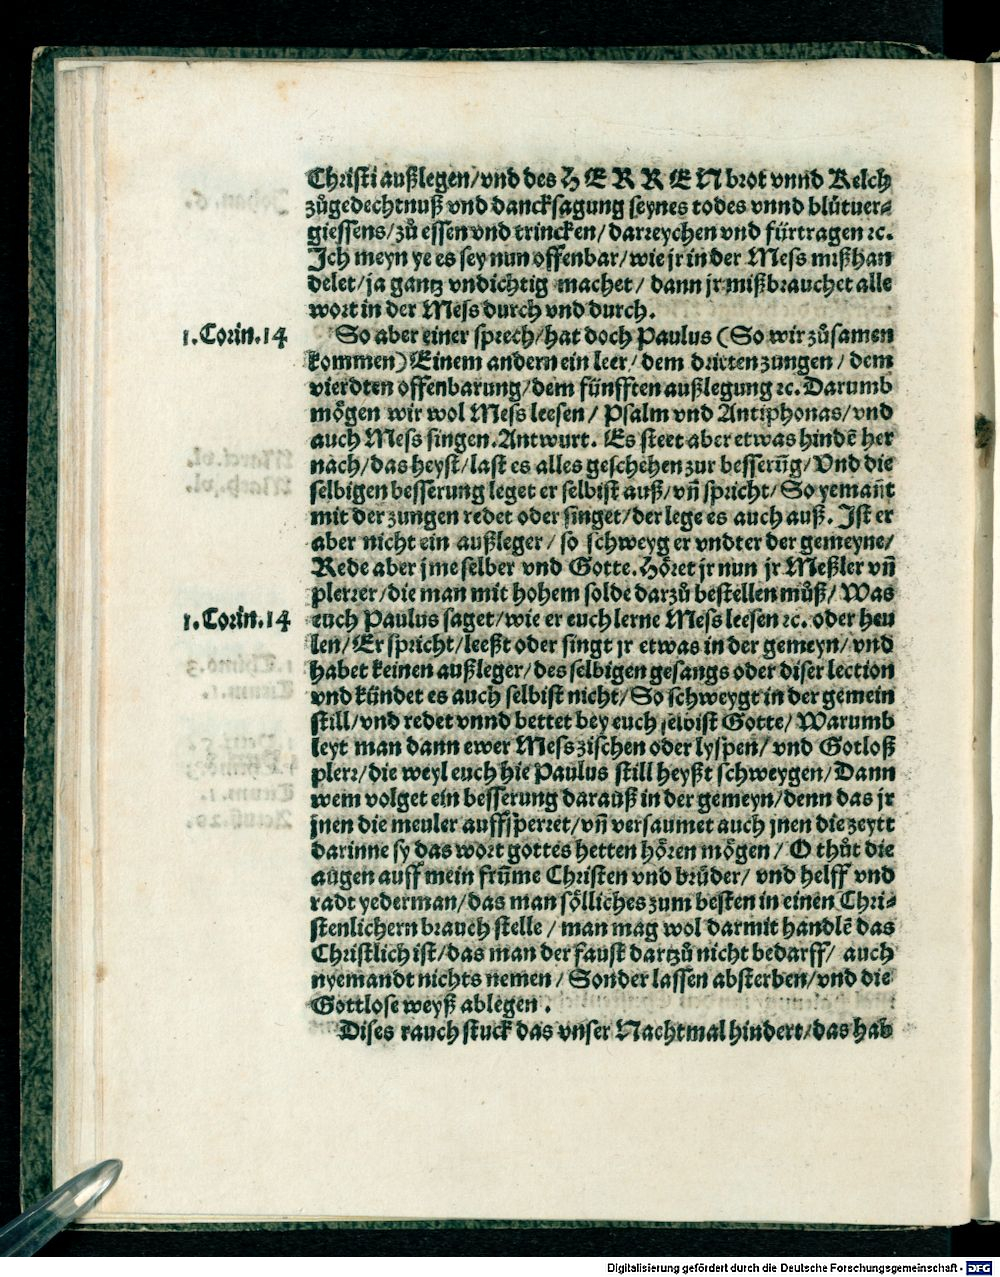 Christi außlegen/vnd des HERREN brot vnnd Kelch
zůgedechtnuß vnd dancksagung seynes todes vnnd blůtuer-
giessens/zů essen vnd trincken/darreychen vnd fürtragen ꝛc.
Ich meyn ye es sey nun offenbar/wie jr in der Mess mißhan
delet/ja gantz vndichtig machet/dann jr mißbrauchet alle
wort in der Mess durch vnd durch.
1.Corin.14
So aber einer sprech/hat doch Paulus (So wir zůsamen
kommen) Einem andern ein leer/dem dritten zungen/dem
vierdten offenbarung/dem fünfften außlegung ꝛc. Darumb
mögen wir wol Mess leesen/Psalm vnd Antiphonas/vnd
auch Mess singen. Antwurt. Es steet aber etwas hindē her
nach/das heyst/last es alles geschehen zur besserūg/Vnd die
selbigen besserung leget er selbist auß/vn̄ spricht/So yeman̄t
mit der zungen redet oder singet/der lege es auch auß. Ist er
aber nicht ein außleger/so schweyg er vndter der gemeyne/
Rede aber jme selber vnd Gotte. Höret jr nun jr Meßler vn̄
plerrer/die man mit hohem solde darzů bestellen můß/Was
1.Corin.14
euch Paulus saget/wie er euch lerne Mess leesen ꝛc. oder heu
len/Er spricht/leeßt oder singt jr etwas in der gemeyn/vnd
habet keinen außleger/des selbigen gesangs oder diser lection
vnd kündet es auch selbist nicht/So schweygt in der gemein
still/vnd redet vnnd bettet bey euch selbist Gotte/Warumb
leyt man dann ewer Mess zischen oder lyspen/vnd Gotloß
plerr/die weyl euch hie Paulus still heyßt schweygen/Dann
wem volget ein besserung darauß in der gemeyn/denn das jr
jnen die meuler auffsperret/vn̄ versaumet auch jnen die zeytt
darinne sy das wort gottes hetten hören mögen/O thůt die
augen auff mein frūme Christen vnd brüder/vnd helff vnd
radt yederman/das man sölliches zum besten in einen Chri-
stenlichern brauch stelle/man mag wol darmit handlē das
Christlich ist/das man der faust dartzů nicht bedarff/auch
nyemandt nichts nemen/Sonder lassen absterben/vnd die
Gottlose weyß ablegen.
Dises rauch stuck das vnser Nachtmal hindert/das hab
Digitalisierung gefördert durch die Deutsche Forschungsgemeinschaft - DFG